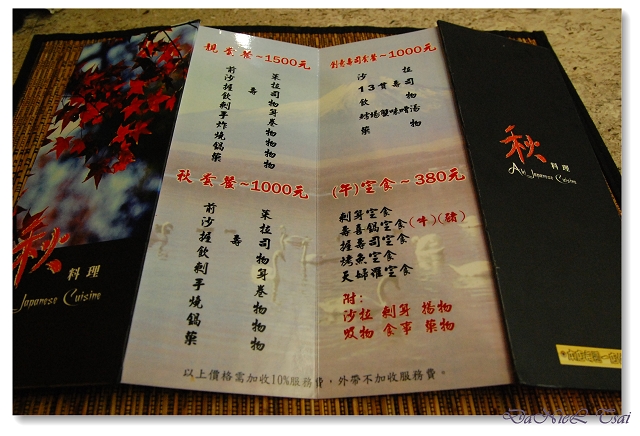 秋
料理
Japanese Cuisine
親套餐~1500元
前菜
沙拉
握壽司
飲物
刺身
手卷
炸物
燒物
鍋物
藥物
秋套餐~1000元
前菜
沙拉
握壽司
飲物
刺身
手卷
燒物
鍋物
藥物
創意壽司套餐~1000元
沙拉
13貫壽司
飲物
味噌湯
藥物
(午)定食~380元
刺身定食
壽喜鍋定食(牛)(豬)
握壽司定食
烤魚定食
天婦羅定食
附:
沙拉 刺身 揚物
吸物 食事 藥物
以上價格需加收10%服務費,外帶不加收服務費。
秋
料理
Aki Japanese Cuisine
DaNieL Tsai